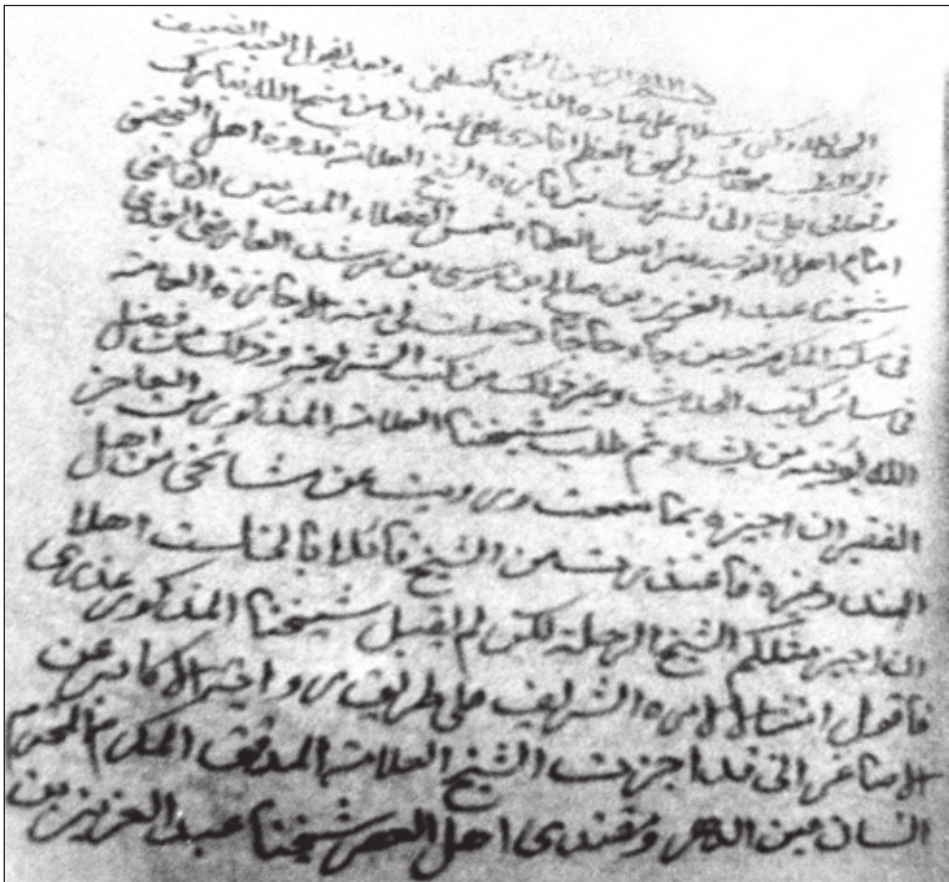 بسم الله الرحمن الرحيم
الحمد لله وكفى وسلام على عباده الذين اصطفى وبعد فيقول العبد الضعيف
عفى عنه ان من منح الله تبارك
وتعالى علي انى تشرفت بزيارة الشيخ العلامة قدوة اهل
امام اهل التوحيد شمس الفضلاء المدرس القاضي
شيخنا عبد العزيز بن صالح بن مرشد
في مكة المكرمة حين جاء حاجا وحصلت لي منه الاجازة العامة
في سائر كتب الحديث وغير ذلك من كتب الشريعة وذلك من فضل
الله يؤتيه من يشاء ثم طلب شيخنا العلامة المذكور من العاجز
الفقير ان اجيزه بما سمعت ورويت عن مشائخي من اهل
الهند وغيره فاعتذرت من الشيخ قائلا فاني لست اهلا
ان اجيز مثلكم الشيخ الرحلة لكن لم يقبل شيخنا المذكور عذري
فأقول امتثالا لامره الشريف على طريق رواية الاكابر عن
الاصاغر اني قد اجزت الشيخ العلامة المدقق المكرم المحترم
انسان عين الدهر ومقتدى اهل العصر شيخنا عبد العزيز بن